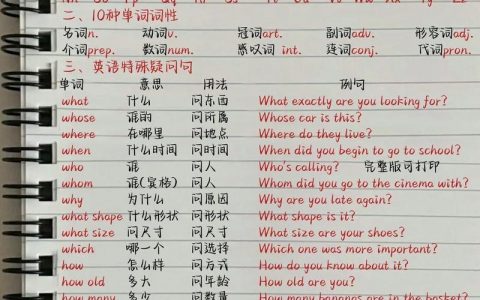 二、10种单词词性
名词n. 动词v. 冠词art. 副词adv. 形容词adj.
介词prep. 数词num. 感叹词 int. 连词conj. 代词pron.
三、英语特殊疑问句
单词 意思 用法 例句
what 什么 问东西 What exactly are you looking for?
whose 谁的 问所属 Whose car is this?
where 在哪里 问地点 Where do they live?
when 什么时间 问时间 When did you begin to go to school?
who 谁 问人 Who's calling? 完整版可打印
whom 谁(宾格) 问人 Whom did you go to the cinema with?
why 为什么 问原因 Why are you late again?
what shape 什么形状 问形状 What shape is it?
what size 问尺寸 问尺寸 What size are your shoes?
which 哪一个 问选择 Which one was more important?
how 怎么样 问方式 How do you know about it?
how old 多大 问年龄 How old are you?
how many 多少 问数量 How many bananas are in the basket?